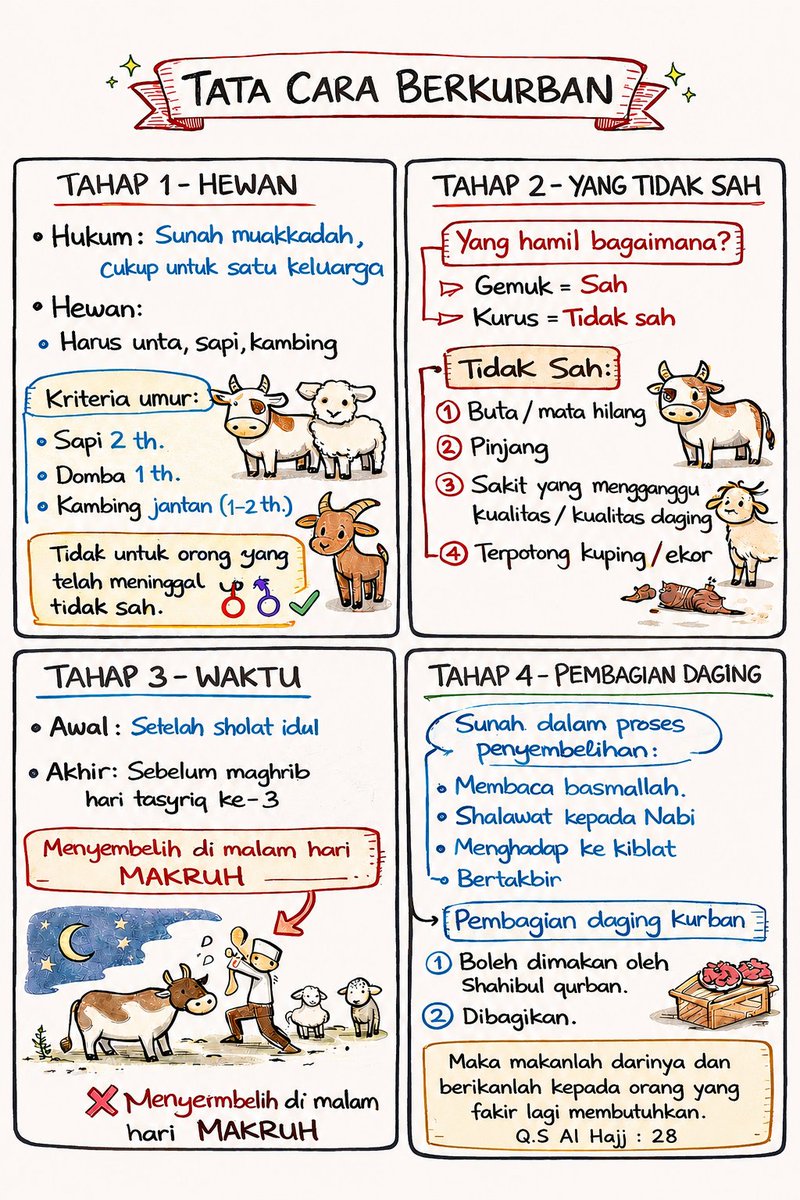 TATA CARA BERKURBAN
TAHAP 1 - HEWAN
• Hukum: Sunah muakkadah,
cukup untuk satu keluarga
• Hewan:
• Harus unta, sapi, kambing
Kriteria umur:
• Sapi 2 th.
• Domba 1 th.
• Kambing jantan (1-2 th.)
Tidak untuk orong yang
telah meninggal
tidak sah.
TAHAP 2 - YANG TIDAK SAH
Yang hamil bagaimana?
Gemuk = Sah
Kurus = Tidak sah
Tidak Sah:
1 Buta / mata hilang
2 Pinjang
3 Sakit yang mengganggu
kualitas / kualitas daging
4 Terpotong kuping / ekor
TAHAP 3 - WAKTU
• Awal: Setelah sholat idul
• Akhir: Sebelum maghrib
hari tasyriq ke-3
Menyembelih di malam hari
MAKRUH
Menyermbelih di malam
hari MAKRUH
TAHAP 4 - PEMBAGIAN DAGING
Sunah dalam proses
penyembelihan:
• Membaca basmallah.
• Shalawat kepada Nabi
• Menghadap ke kiblat
Bertakbir
Pembagian daging kurban
1 Boleh dimakan oleh
Shahibul qurban.
2 Dibagikan.
Maka makanlah darinya dan
berikanlah kepada orang yang
fakir lagi membutuhkan.
Q.S Al Hajj : 28